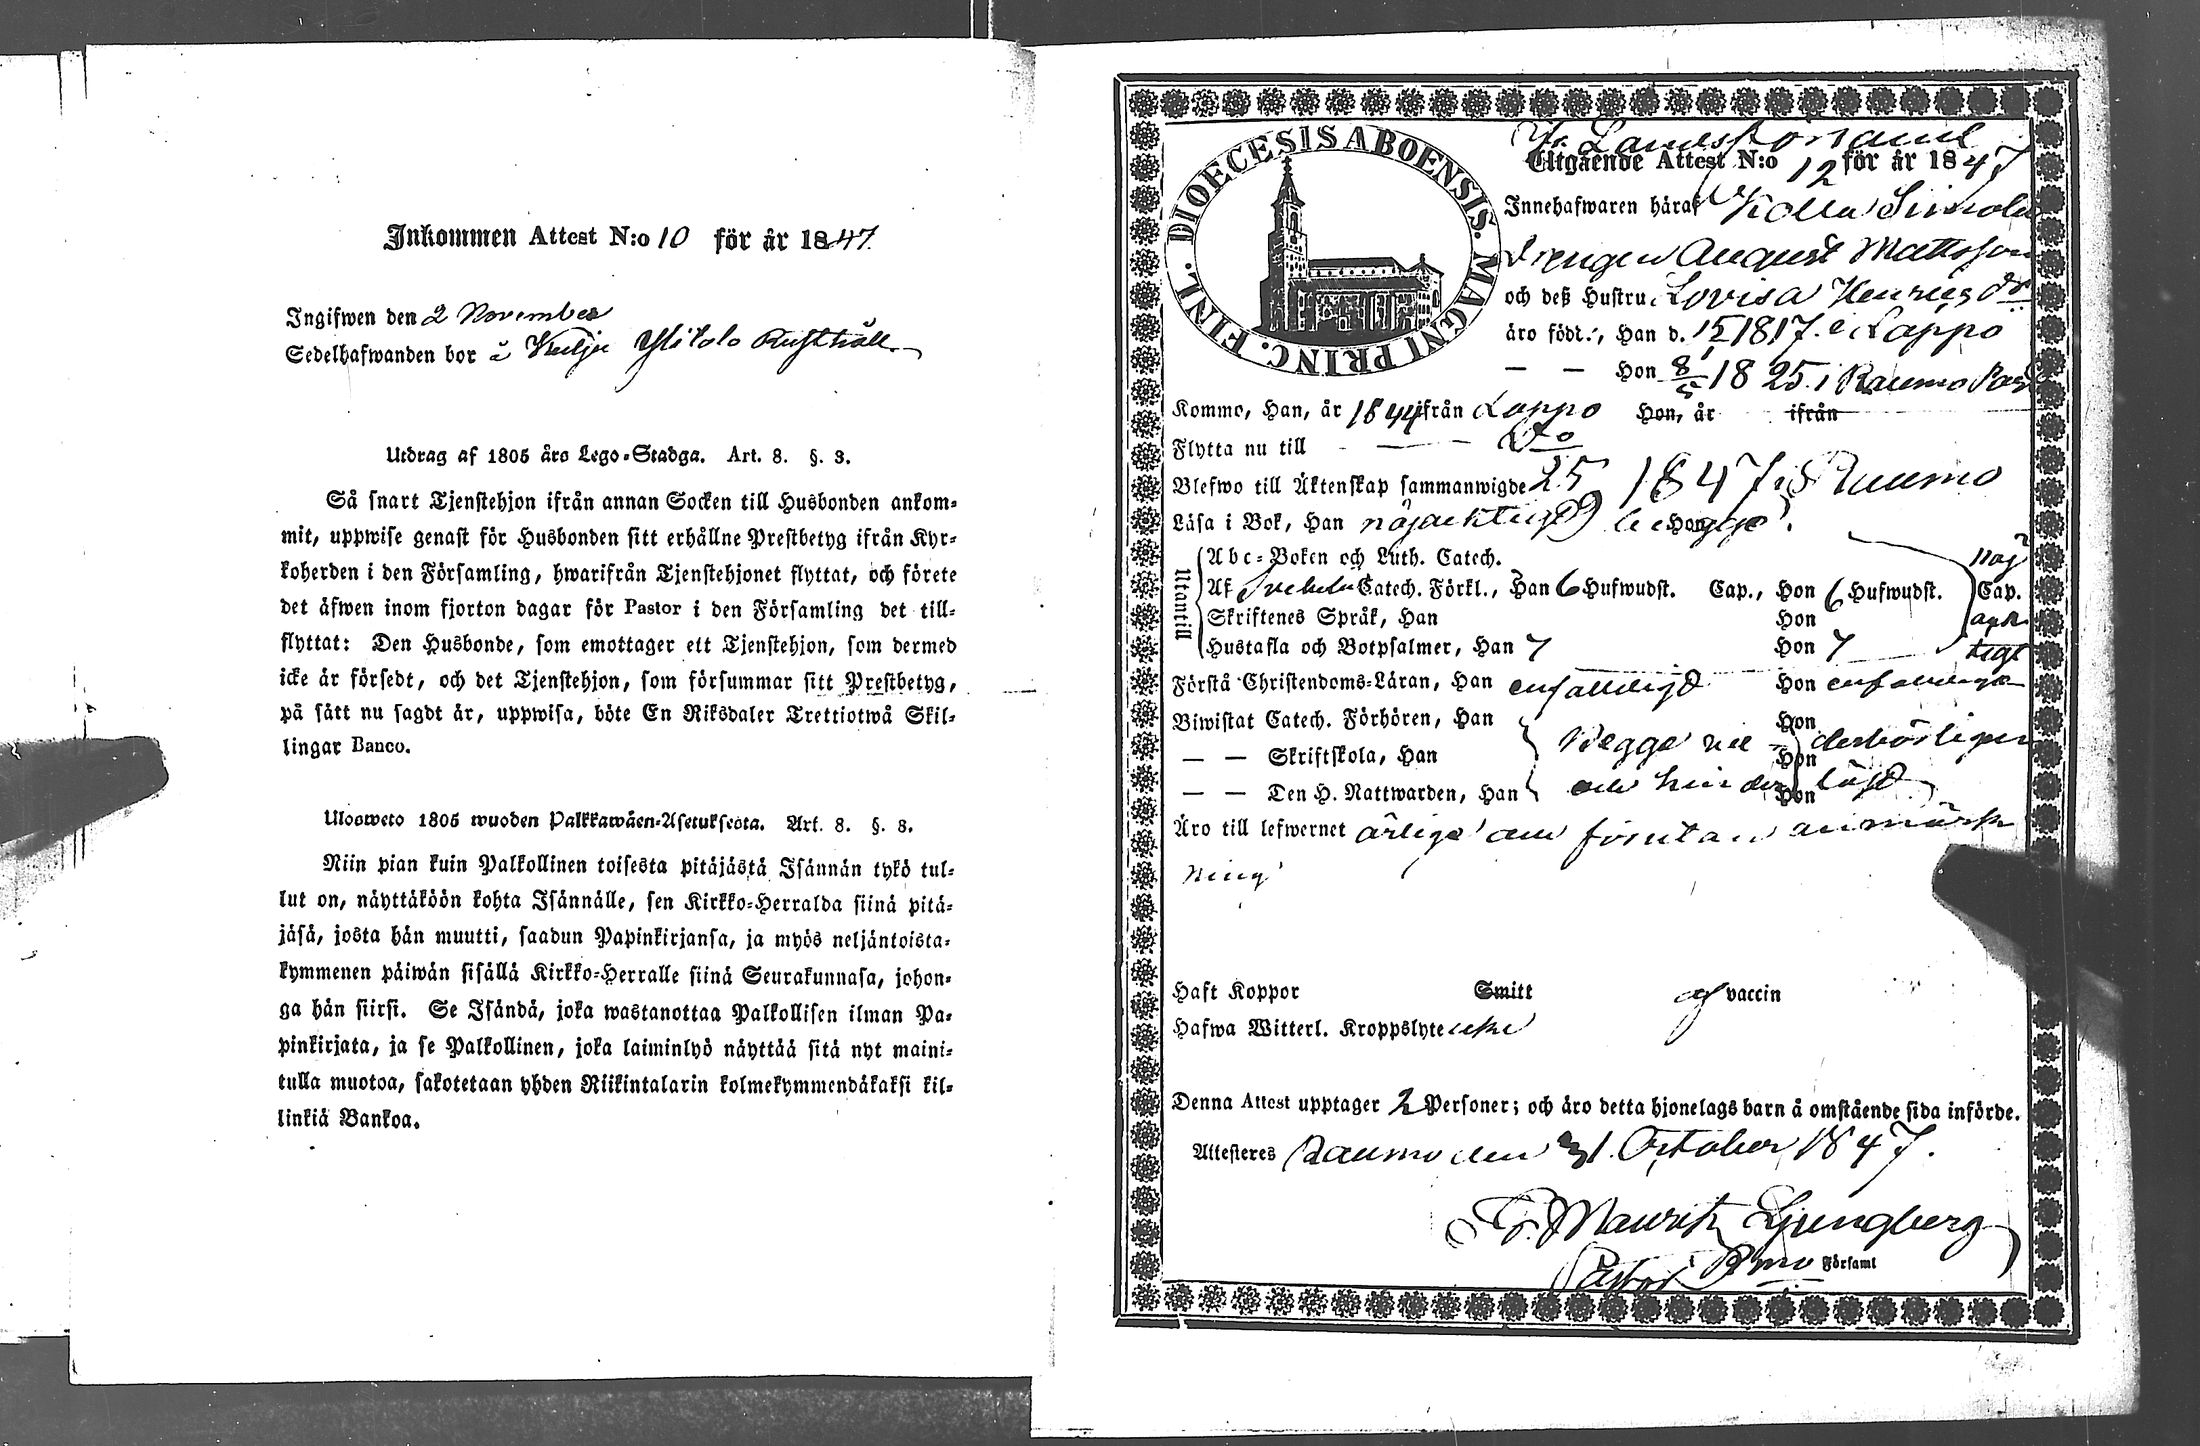 Inkommen Attest N:o 10 för år 1847.
Ingifwen den 2 November
Sedelhafwanden bor å Kulju Ylitalo Rusthåll
Utdrag af 1805 års Lego-Stadga. Art. 8. §. 3.
Så snart Tjenstehjon ifrån annan Socken till Husbonden ankom-
mit, uppwise genast för Husbonden sitt erhållne Prestbetyg ifrån Kyr-
koherden i den Församling, hwarifrån Tjenstehjonet flyttat, och förete
det äfwen inom fjorton dagar för Pastor i den Församling det till-
flyttat: Den Husbonde, som emottager ett Tjenstehjon, som dermed
icke är försedt, och det Tjenstehjon, som försummar sitt Prestbetyg,
på sätt nu sagdt är, uppwisa, böte En Riksdaler Trettiotwå Skil-
lingar Banco.
Ulosweto 1805 wuoden Palkkawäen-Asetuksesta. Art. 8. §. 3.
Niin pian kuin Palkollinen toisesta pitäjästä Isännän tykö tul-
lut on, näyttäköön kohta Isännälle, sen Kirkko-Herralda siinä pitä-
jäsä, josta hän muutti, saadun Papinkirjansa, ja myös neljäntoista-
kymmenen päiwän sisällä Kirkko-Herralle siinä Seurakunnasa, johon-
ga hän siirsi. Se Isändä, joka wastanottaa Palkollisen ilman Pa-
pinkirjata, ja se Palkollinen, joka laiminlyö näyttää sitä nyt maini-
tulla muotoa, sakotetaan yhden Riikintalarin kolmekymmendäkaksi kil-
linkiä Bankoa.
DIOECESIS ABOENSIS. MAGNI PRINC. FINL.
Utgående Attest N:o 12 för år 1847
Innehafwaren häraf
Drengen August Mattsson
och deß Hustru Lovisa Henricsdr
äro födt:, Han d. 1817 i Lappo
— — Hon 8/5 1825 i Raumo
Kommo, Han, år 1844 ifrån Lappo Hon, år ifrån
Flytta nu till — — Do
Blefwo till Äktenskap sammanwigde 25 1847 i Raumo
Läsa i Bok, Han nöjaktigt begge Hon
Utantill
Abc-Boken och Luth. Catech. nöj
Af Svebelii Catech. Förkl., Han 6 Hufwudst. Cap., Hon 6 Hufwudst. Cap.
Skriftenes Språk, Han Hon ak
Hustafla och Botpsalmer, Han 7 Hon 7 tigt
Förstå Christendoms-Läran, Han enfaldigt Hon enfaldigt
Biwistat Catech. Förhören, Han Begge ve- Hon derbörligen
— — Skriftskola, Han Hon
— — Den H. Nattwarden, Han och hinder Hon löst
Äro till lefwernet ärliga och förutan anmärk
ning
Haft Koppor Smitt af vaccin
Hafwa Witterl. Kroppslyte icke
Denna Attest upptager 2 Personer; och äro detta hjonelags barn å omstående sida införde.
Attesteres Raumo den 31 October 1847.
Mauritz Ljungberg
Pastor i Rmo Församl